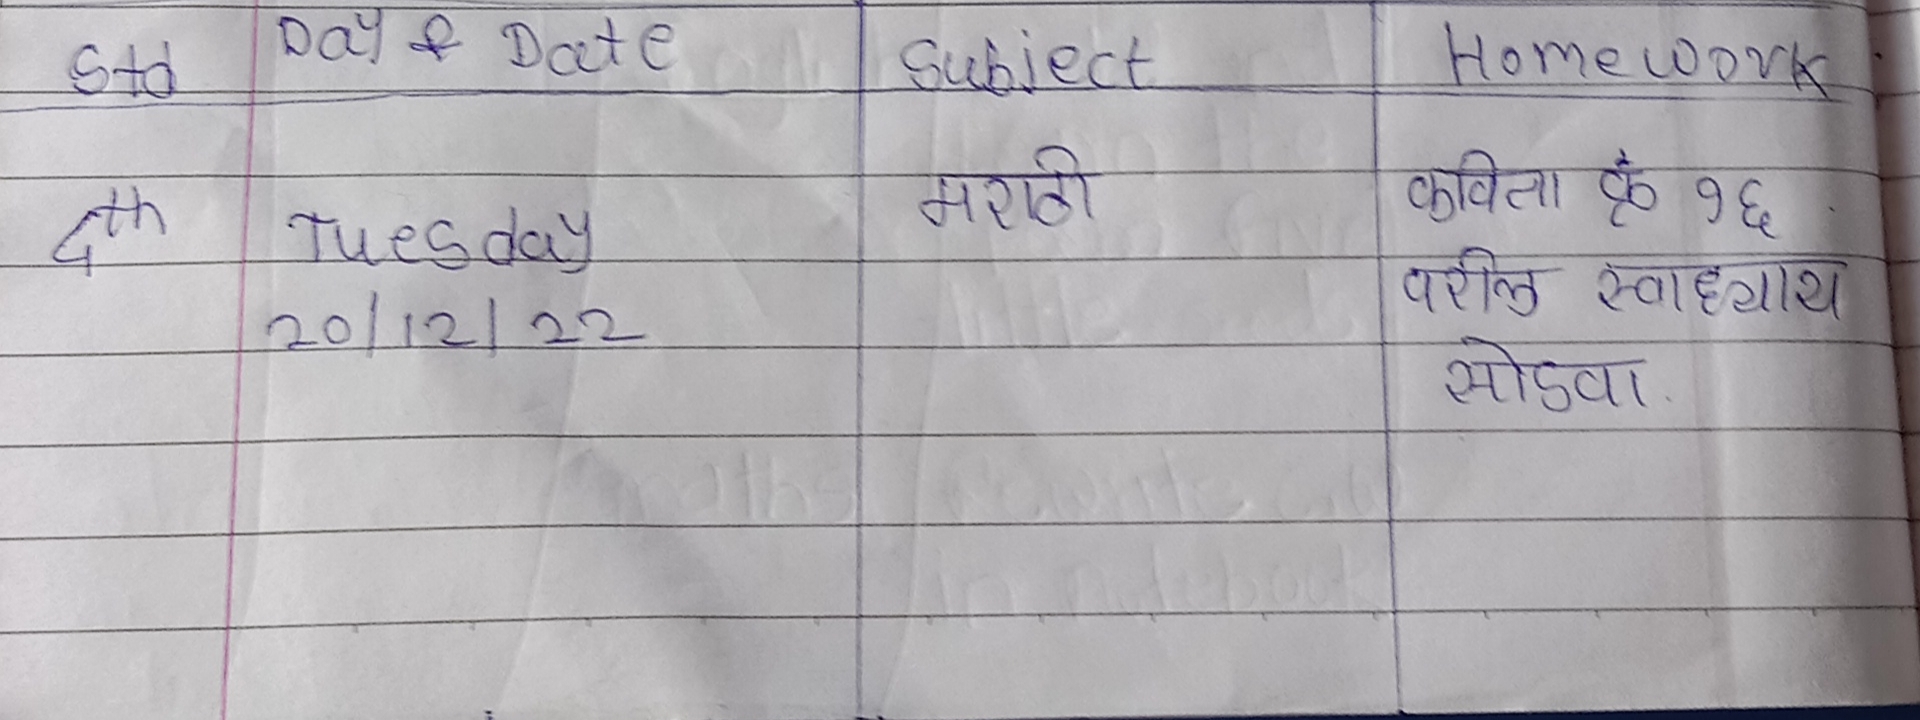 Std Day & Date Subject Homework
4th Tuesday मराठी कविता क्रं १६
20/12/22 वरील स्वाध्याय
सोडवा.